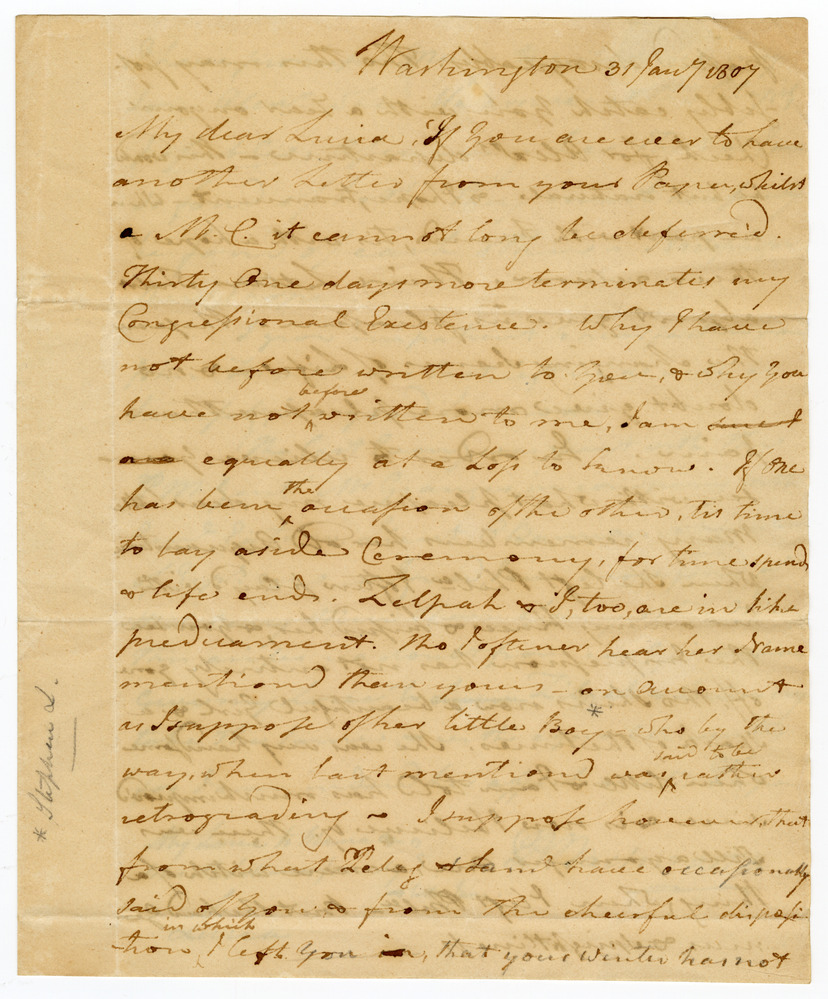 Washington 31 Jany 1807
My dear Lucia, If You are ever to have
another Letter from your Papa, whilst
a M.C. it cannot long be deferred.
Thirty One days more terminates my
Congressional Existence. Why I have
not before written to You, & why you
before
have not written to me, I am
are equally at a Loss to know. If One
the
has been occasion of the other, tis time
to lay aside Ceremony, for time spends
& life ends. Zelpah & I, too, are in like
predicament. tho I oftener hear her Name
mentiond than yours – on account
as I suppose of her little Boy* – who by the
said to be
way, when last mentiond was rather
retrograding – I suppose however, that
from what Peleg & have occasionally
said of You, & from the cheerful disposi
in which
-tion I left You in, that your winter has not
* Stephen L.